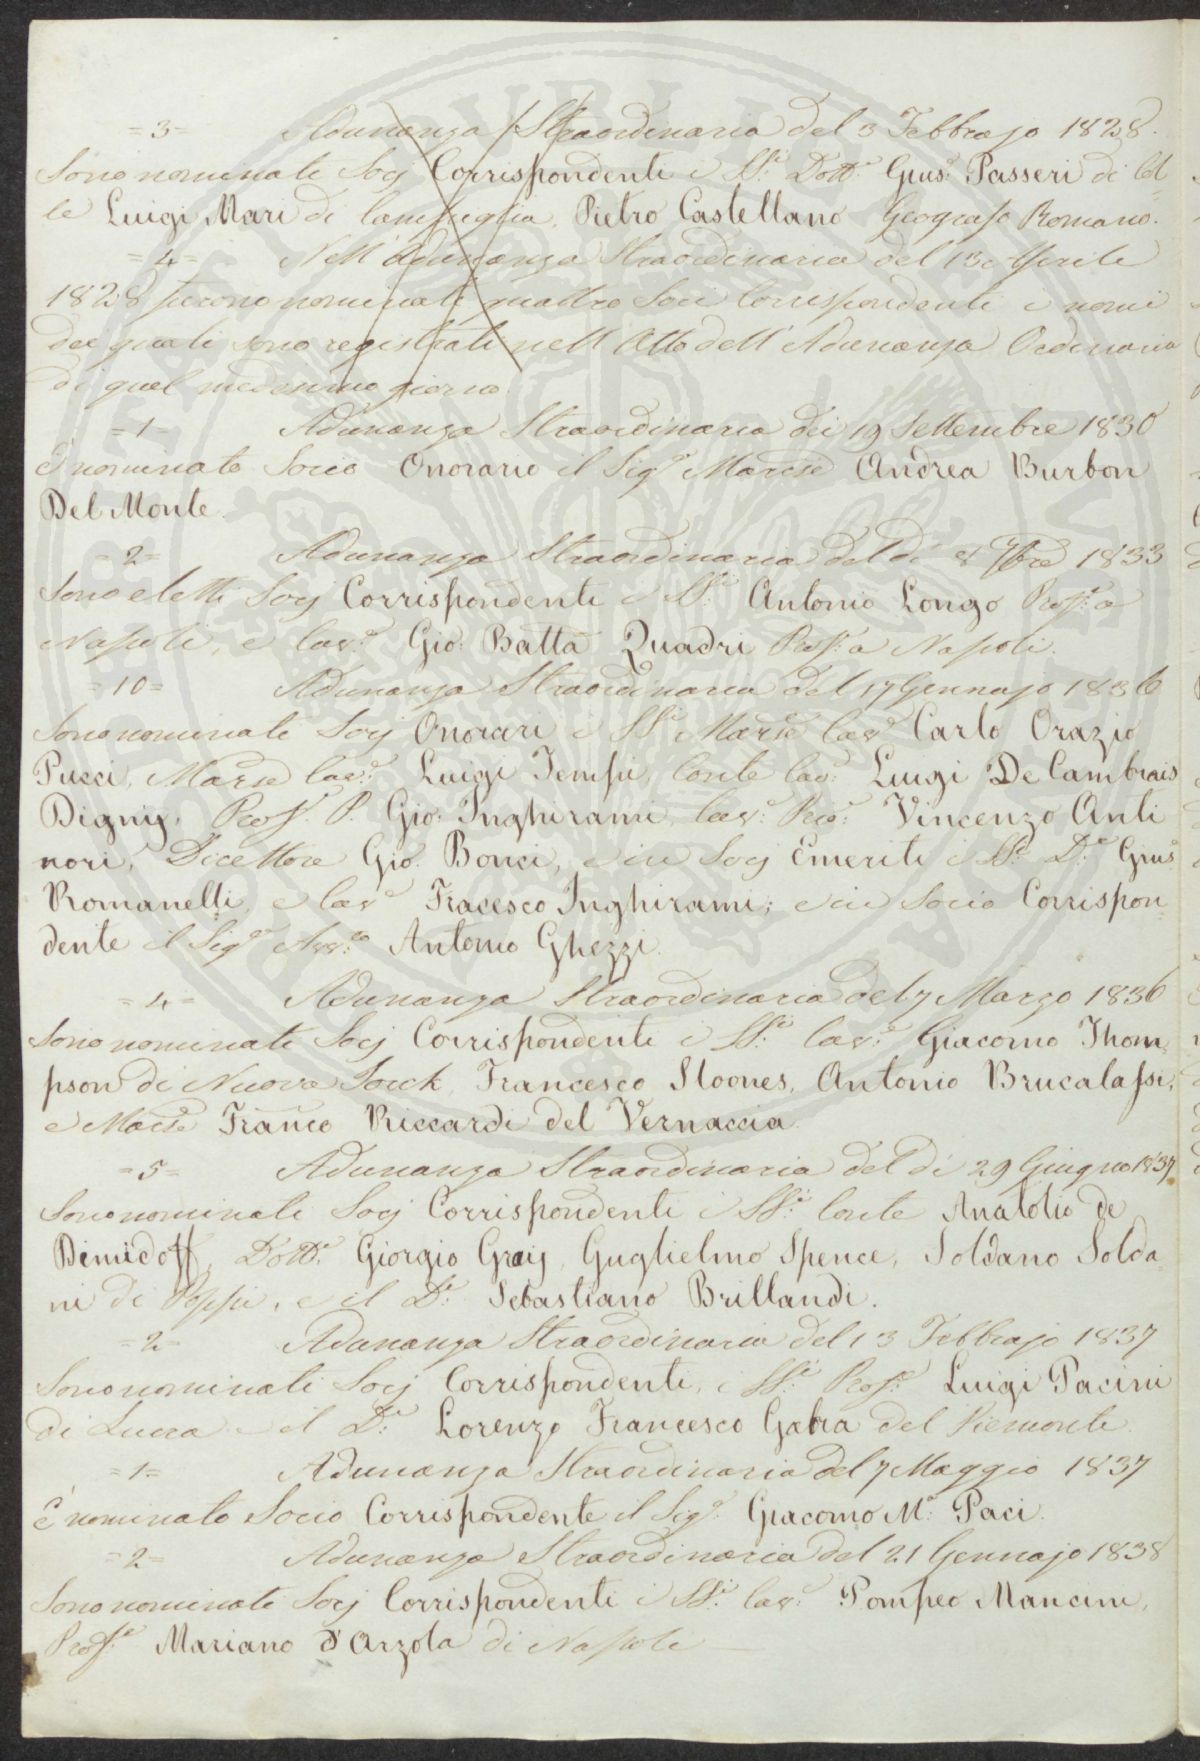 =3= Adunanza Straordinaria del 3 Febbrajo 1828.
Sono nominati Socj Corrispondenti i SS.i Dott.e Gius.e Passeri di Col=
le Luigi Mari di Campiglia, Pietro Castellano Geografo Romano.
=4= Nell'Adunanza Straordinaria del 13 Aprile
1828 furono nominati quattro Soci Corrispondenti i nomi
dei quali sono registrati nell'Atto dell'Adunanza Ordinaria
di quel medesimo giorno.
=1= Adunanza Straordinaria dei 19 Settembre 1830
È nominato Socio Onorario il Sig.e Marcse Andrea Burbon
Del Monte.
=2= Adunanza Straordinaria del dì 8 7bre 1833
Sono eletti Socj Corrispondenti i SS.i Antonio Longo Prof.e a
Napoli, e Cav.e Gio. Batta Quadri Prof. a Napoli.
=10= Adunanza Straordinaria del 17 Gennajo 1836
Sono nominati Socj Onorari i SS.i Marse Cav.e Carlo Orazio
Pucci, Marse Cav.e Luigi Tempi, Conte Cav.e Luigi De Cambrais
Digny, Prof. P. Gio. Inghirami, Cav.e Vincenzo Anti
nori, Direttore Gio. Bonci, e in Socj Emeriti i SS.i D.e Gius.e
Romanelli, e Cav.e Fracesco Inghirami; e in Socio Corrispon=
dente il Sig.e Avv.to Antonio Ghezzi.
=4= Adunanza Straordinaria del 7 Marzo 1836
Sono nominati Socj Corrispondenti i SS.i Cav.e Giacomo Thom=
pson di Nuova Jorck, Francesco Stoones, Antonio Brucalassi,
e Marse Franco Riccardi del Vernaccia.
=5= Adunanza Straordinaria del dì 29 Giugno 1837
Sono nominati Socj Corrispondenti i SS.i Conte Anatolio de
Dimidoff, Dott.e Giorgio Graij, Guglielmo Spence, Soldano Solda
ni di Poppi, e il D.e Sebastiano Brillandi.
=2= Adunanza Straordinaria del 13 Febbrajo 1837
Sono nominati Socj Corrispondenti, i SS.i Prof.e Luigi Pacini
di Lucca e il D.e Lorenzo Francesco Gatta del Piemonte.
=1= Adunanza Straordinaria del 7 Maggio 1837
È nominato Socio Corrispondente il Sig.e Giacomo M.a Paci.
=2= Adunanza Straordinaria del 21 Gennajo 1838
Sono nominati Socj Corrispondenti i SS.i Cav.e Pompeo Mancini,
Prof.e Mariano d'Arzola di Napoli